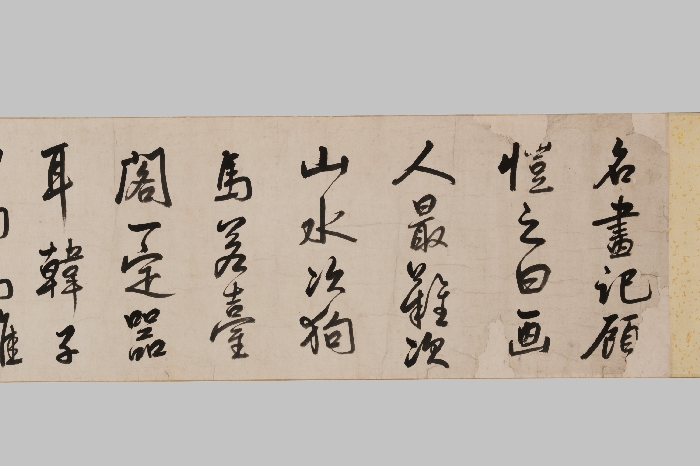 名畫記顧
愷之曰画
人最難次
山水次狗
馬若臺
閣一定器
耳韓子